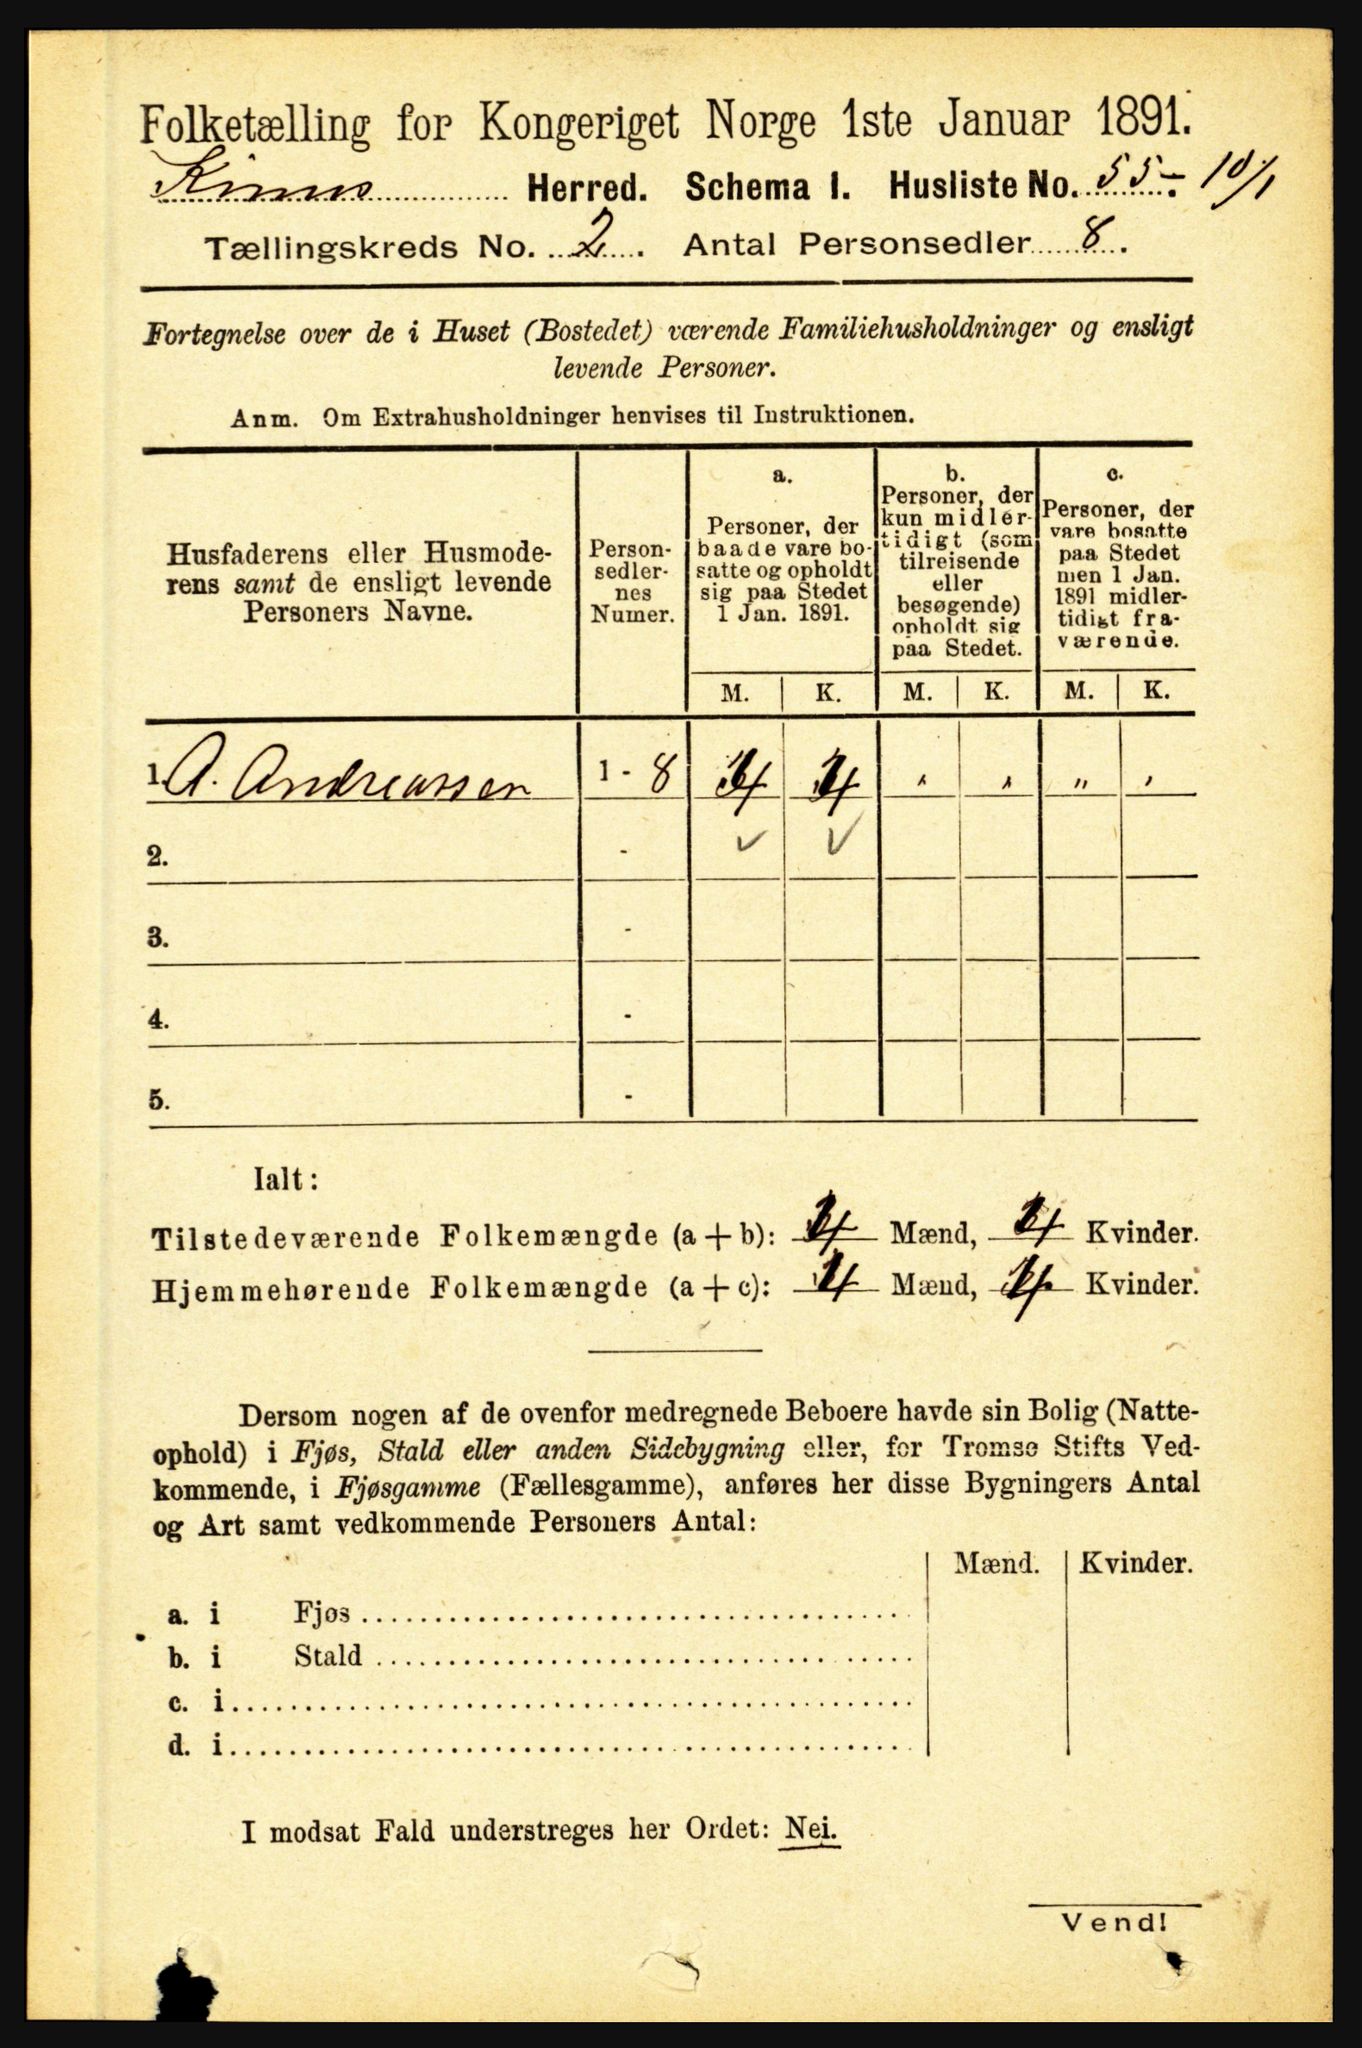 Folketælling for Kongeriget Norge 1ste Januar 1891.
Kinns Herred. Schema I. Husliste No. 55 - 10/1
Tællingskreds No. 2. Antal Personsedler 8.
Fortegnelse over de i Huset (Bostedet) værende Familiehusholdninger og ensligt
levende Personer.
Anm. Om Extrahusholdninger henvises til Instruktionen.
Husfaderens eller Husmode-
rens samt de ensligt levende
Personers Navne.
Person-
sedler-
nes
Numer.
a.
Personer, der
baade vare bo-
satte og opholdt
sig paa Stedet
1 Jan. 1891.
b.
Personer, der
kun midler-
tidigt (som
tilreisende
eller
besøgende)
opholdt sig
paa Stedet.
c.
Personer, der
vare bosatte
paa Stedet
men 1 Jan.
1891 midler-
tidigt fra-
værende.
M. K. M. K. M. K.
1. A. Andreassen 1 - 8 4 4 " " " "
2. -
3. -
4. -
5. -
Ialt:
Tilstedeværende Folkemængde (a + b): 4 Mænd, 4 Kvinder.
Hjemmehørende Folkemængde (a + c): 4 Mænd, 4 Kvinder.
Dersom nogen af de ovenfor medregnede Beboere havde sin Bolig (Natte-
ophold) i Fjøs, Stald eller anden Sidebygning eller, for Tromsø Stifts Ved-
kommende, i Fjøsgamme (Fællesgamme), anføres her disse Bygningers Antal
og Art samt vedkommende Personers Antal:
Mænd. Kvinder.
a. i Fjøs
b. i Stald
c. i
d. i
I modsat Fald understreges her Ordet: Nei.
Vend!